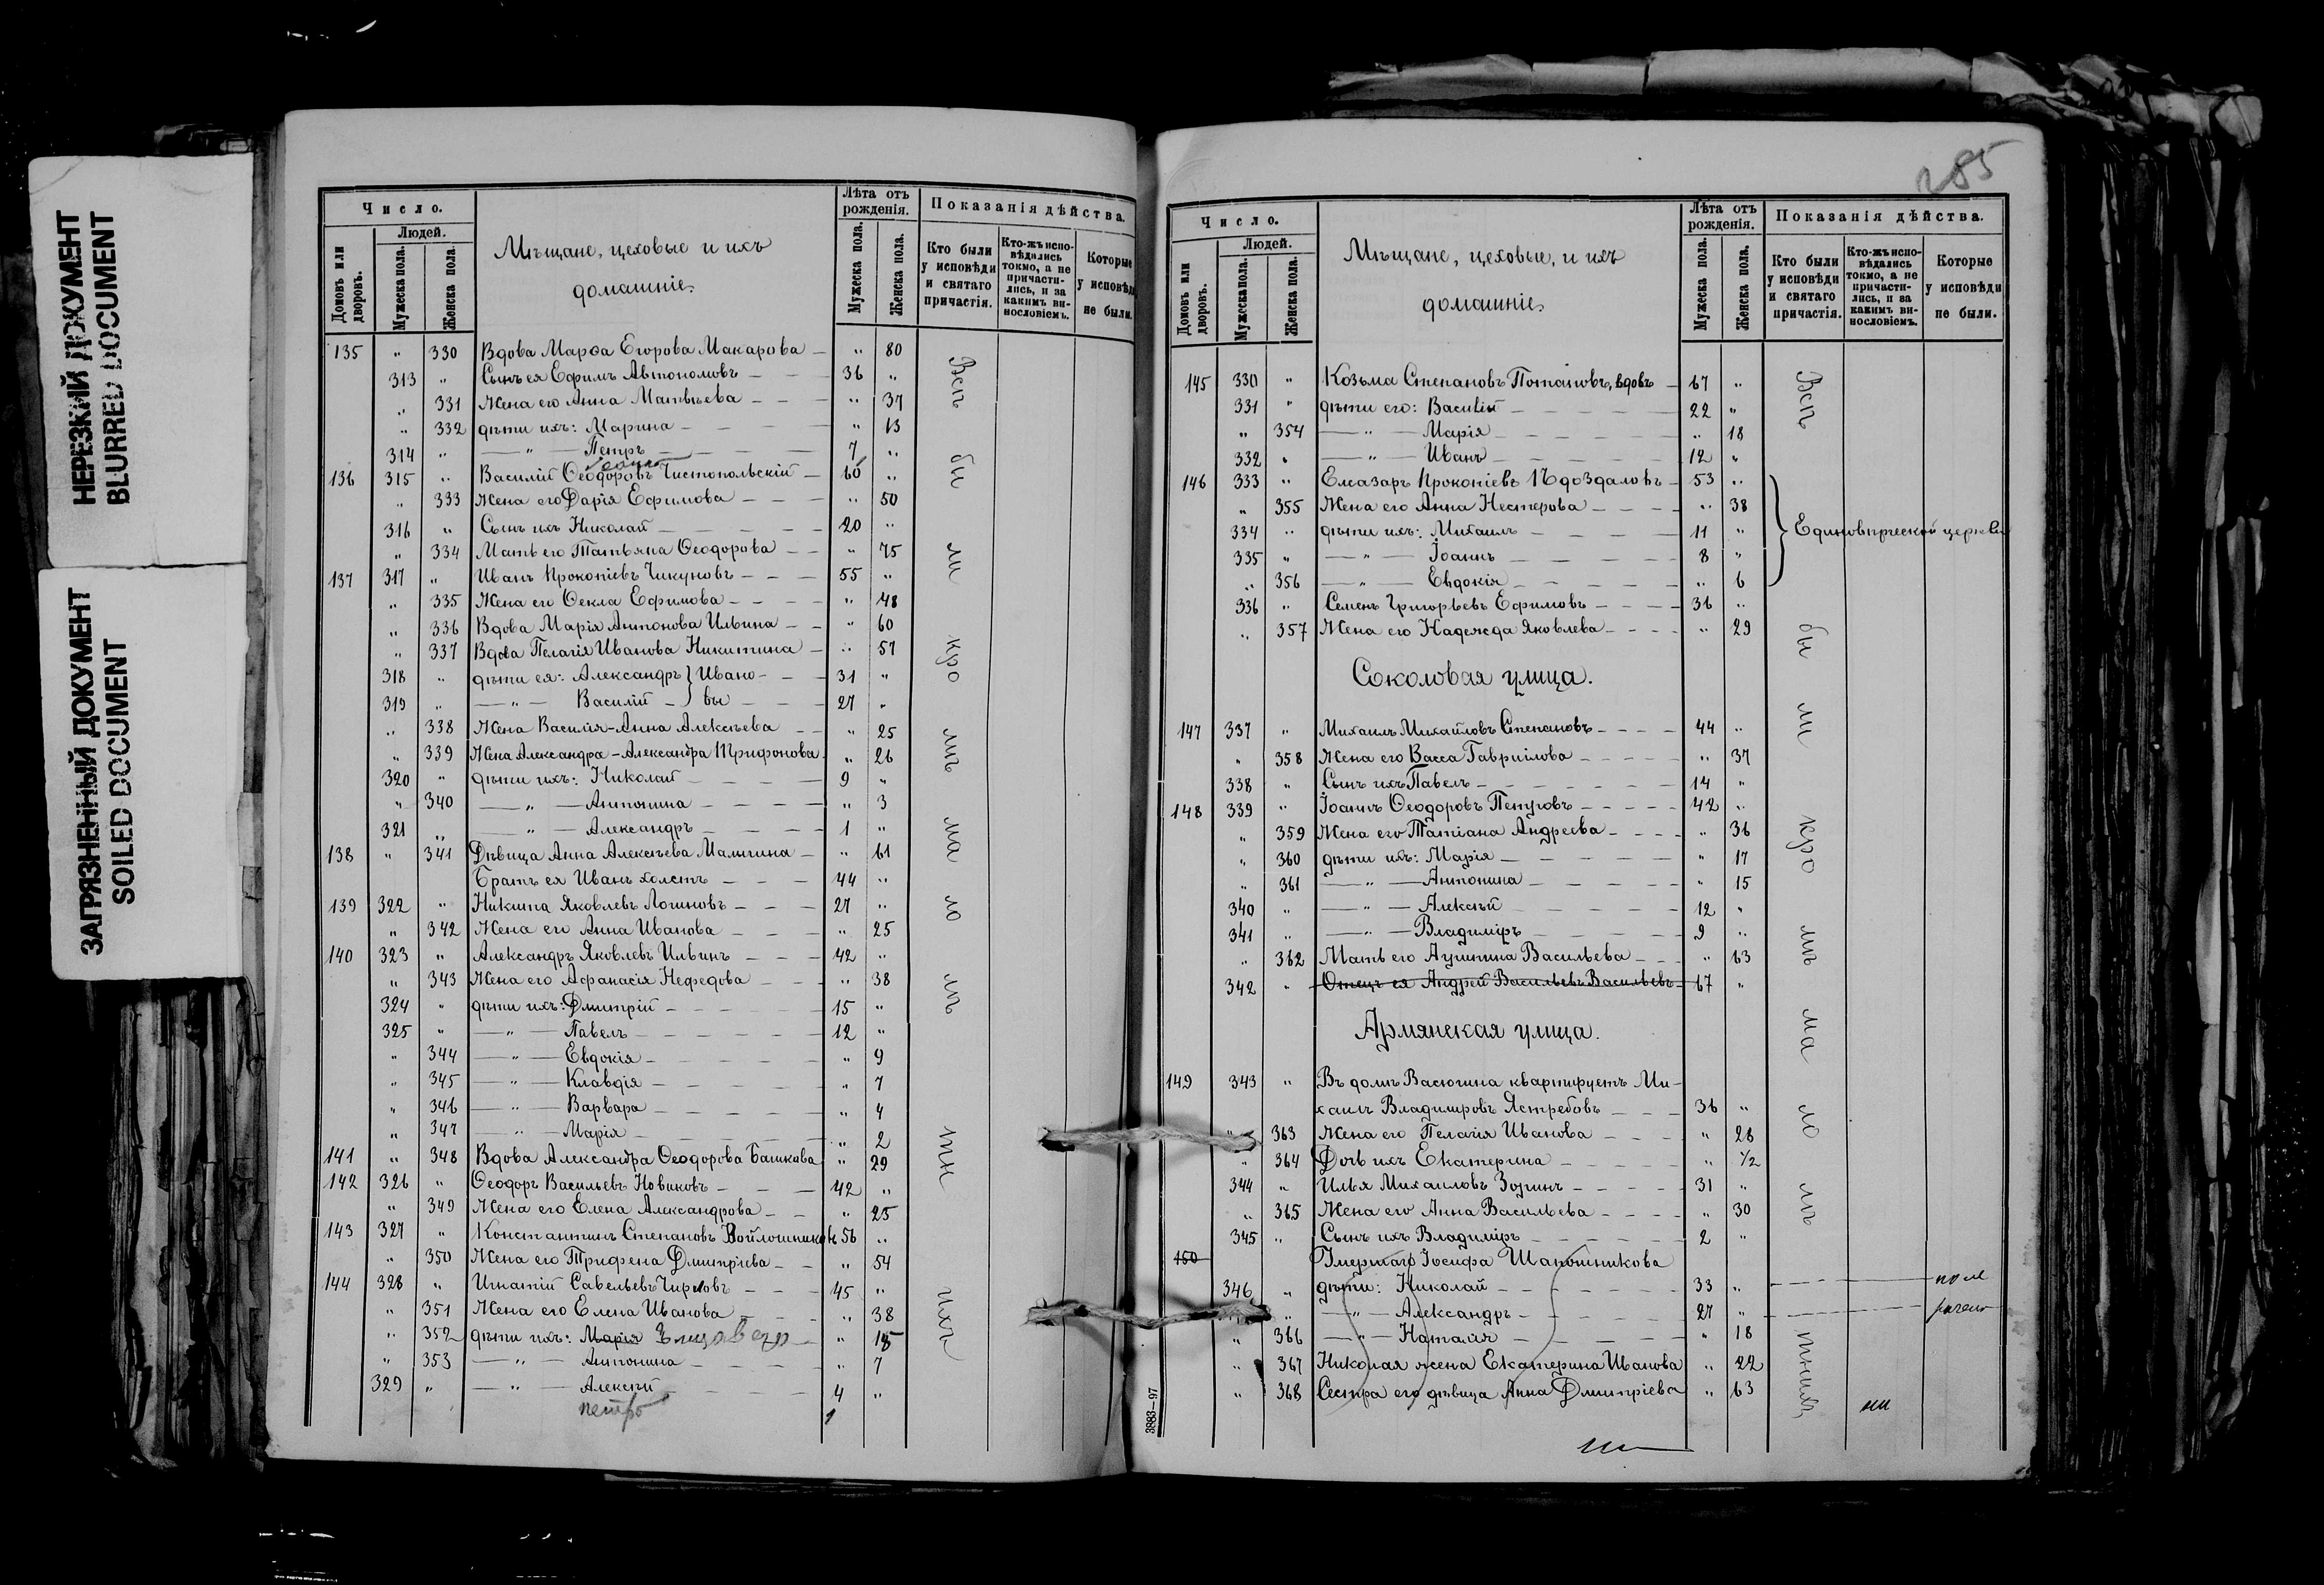 НЕРЕЗКИЙ ДОКУМЕНТ
BLURRED DOCUMENT
ЗАГРЯЗНЕННЫЙ ДОКУМЕНТ
SOILED DOCUMENT
Число.
Людей.
Домовъ или дворовъ.
Мужеска пола.
Женска пола.
Мѣщане, цеховые и ихъ
домашніе.
Лѣта отъ рожденія.
Мужеска пола.
Женска пола.
Показанія дѣйства.
Кто были у исповѣди и святаго причастія.
Кто-жъ исповѣдались токмо, а не причастились, и за какимъ винословіемъ.
Которые у исповѣди не были.
135 " 330 Вдова Марѳа Егорова Макарова — " 80
313 " Сынъ ея Ефимъ Автономовъ — 36 "
" 331 Жена его Анна Матвѣева — " 37
" 332 дѣти ихъ: Марина — " 13
314 " — " — Петръ — 7 "
136 315 " Василій Ѳеодоровъ Чистопольскій — 60 "
" 333 Жена его Дарія Ефимова — " 50
316 " Сынъ ихъ Николай — 20 "
" 334 Мать его Татьяна Ѳеодорова — " 75
137 317 " Иванъ Прокопіевъ Чикуновъ — 55 "
" 335 Жена его Ѳекла Ефимова — " 48
" 336 Вдова Марія Антонова Ильина — " 60
" 337 Вдова Пелагія Иванова Никитина — " 57
318 " дѣти ея: Александръ } Ивано- — 31 "
319 " — " — Василій — } вы — 27 "
" 338 Жена Василія - Анна Алексѣева — " 25
" 339 Жена Александра - Александра Трифонова " 26
320 " дѣти ихъ: Николай — 9 "
" 340 — " — Антонина — " 3
321 " — " — Александръ — 1 "
138 " 341 Дѣвица Анна Алексѣева Малыгина — " 61
Братъ ея Иванъ холостъ — 44 "
139 322 " Никита Яковлевъ Логиновъ — 27 "
" 342 Жена его Анна Иванова — " 25
140 323 " Александръ Яковлевъ Ильинъ — 42 "
" 343 Жена его Афанасія Нефедова — " 38
324 " дѣти ихъ: Дмитрій — 15 "
325 " — " — Павелъ — 12 "
" 344 — " — Евдокія — " 9
" 345 — " — Клавдія — " 7
" 346 — " — Варвара — " 4
" 347 — " — Марія — " 2
141 " 348 Вдова Александра Ѳеодорова Башкова " 29
142 326 " Ѳеодоръ Васильевъ Новиковъ — 42 "
" 349 Жена его Елена Александрова — " 25
143 327 " Константинъ Степановъ Войлошниковъ 56 "
" 350 Жена его Трифена Дмитріева — " 54
144 328 " Игнатій Савельевъ Чирковъ — 45 "
" 351 Жена его Елена Иванова — " 38
" 352 дѣти ихъ: Марія Элизавета — " 18
" 353 — " — Антонина — " 7
329 " — " — Алексѣй — 4 "
петръ 1
Всѣ бы ли кро мѣ ма ло лѣ тн ихъ
285
Число.
Людей.
Домовъ или дворовъ.
Мужеска пола.
Женска пола.
Мѣщане, цеховые, и ихъ
домашніе.
Лѣта отъ рожденія.
Мужеска пола.
Женска пола.
Показанія дѣйства.
Кто были у исповѣди и святаго причастія.
Кто-жъ исповѣдались токмо, а не причастились, и за какимъ винословіемъ.
Которые у исповѣди не были.
145 330 " Козьма Степановъ Потаповъ, вдовъ — 67 "
331 " дѣти его: Василій — 22 "
" 354 — " — Марія — " 18
332 " — " — Иванъ — 12 "
146 333 " Елеазаръ Прокопіевъ — 53 "
" 355 Жена его Анна Нестерова — " 38
334 " дѣти ихъ: Михаилъ — 11 "
335 " — " — Іоаннъ — 8 "
" 356 — " — Евдокія — " 6
} Единовѣрческой церкви
336 " Семенъ Григорьевъ Ефимовъ — 36 "
" 357 Жена его Надежда Яковлева — " 29
Соколовая улица.
147 337 " Михаилъ Михайловъ Степановъ — 44 "
" 358 Жена его Васса Гавриилова — " 37
338 " Сынъ ихъ Павелъ — 14 "
148 339 " Іоаннъ Ѳеодоровъ Петровъ — 42 "
" 359 Жена его Татіана Андреева — " 36
" 360 дѣти ихъ: Марія — " 17
" 361 — " — Антонина — " 15
340 " — " — Алексѣй — 12 "
341 " — " — Владиміръ — 9 "
" 362 Мать его Агрипина Васильева — " 63
342 " Отецъ ея Андрей Васильевъ Васильевъ 67 "
Армянская улица.
149 343 " Въ домѣ Васюгина квартируетъ Ми-
хаилъ Владиміровъ Ястребовъ — 36 "
" 363 Жена его Пелагія Иванова — " 28
" 364 Дочь ихъ Екатерина — " 1/2
344 " Илья Михаиловъ Зоринъ — 31 "
" 365 Жена его Анна Васильева — " 30
345 " Сынъ ихъ Владиміръ — 2 "
150 Умершаго Іосифа Шапошникова
346 " дѣти: Николай — 33 "
— " — Александръ — 27 "
" 366 — " — Наталія — " 18
" 367 Николая жена Екатерина Иванова " 22
" 368 Сестра его дѣвица Анна Дмитріева " 63
Всѣ бы ли кро мѣ ма ло лѣ тнихъ
3883—97